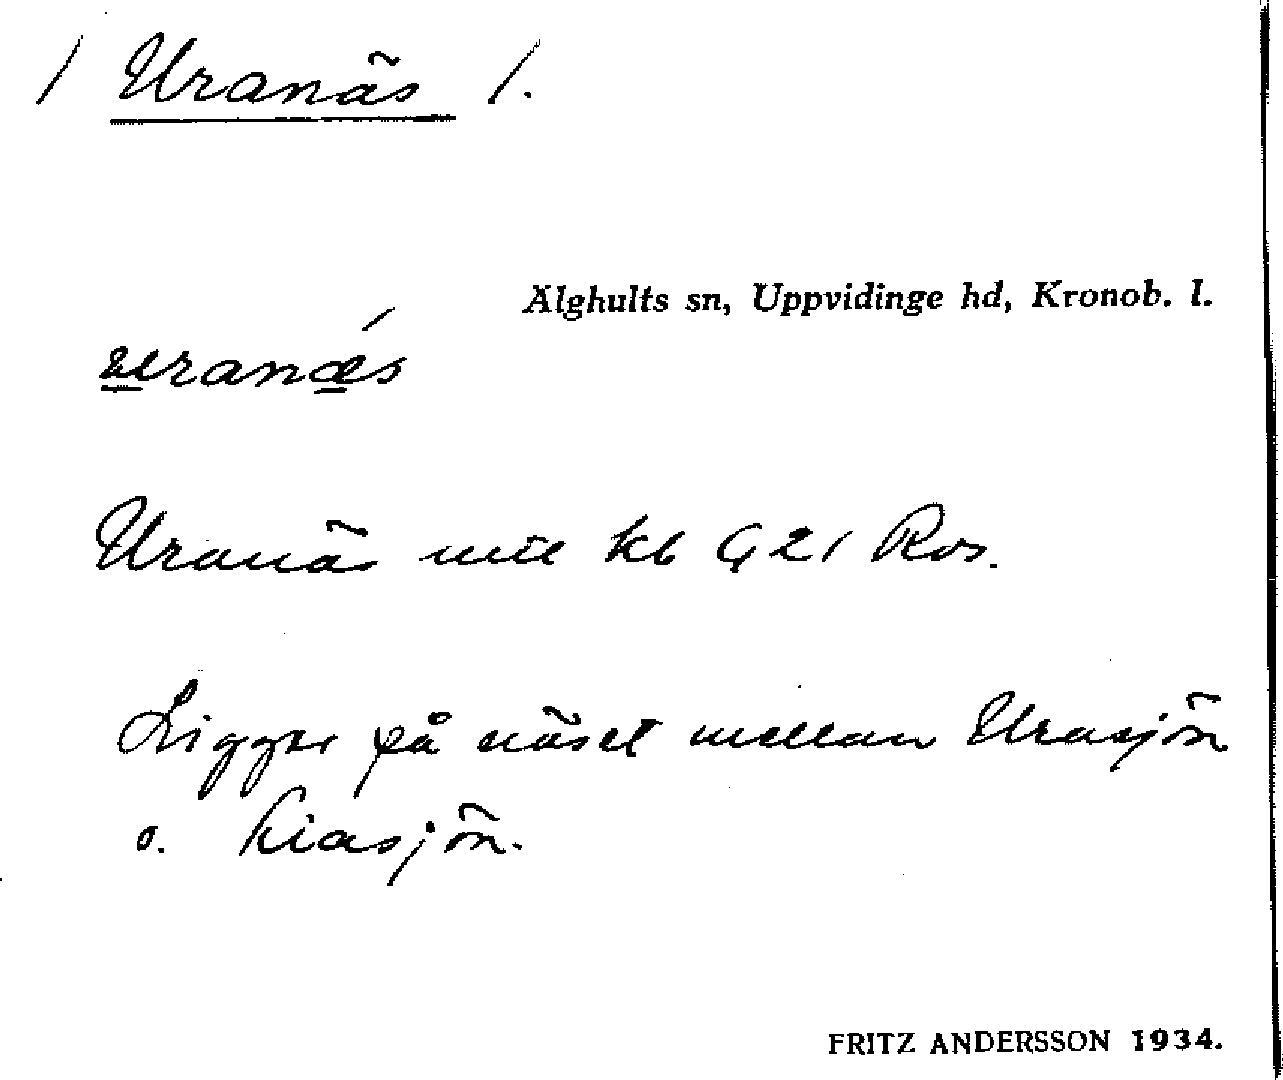 / Uranäs /.
Älghults sn, Uppvidinge hd, Kronob. l.
uranæs
Uranäs mtl kb G 21 Ros.
Ligger på näset mellan Urasjön
o. Kiasjön.
FRITZ ANDERSSON 1934.